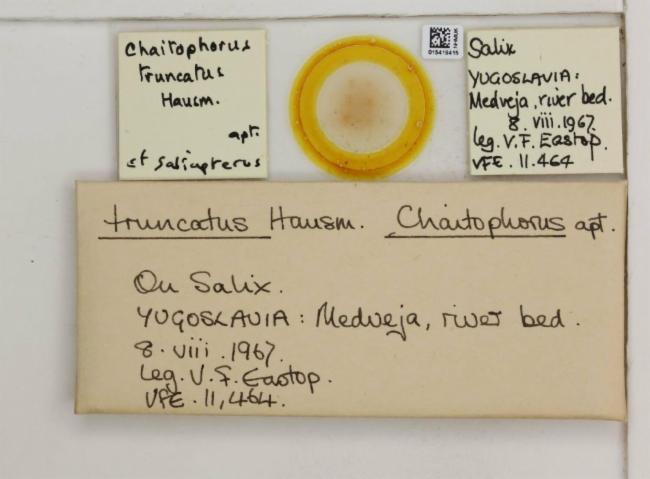 Chaitophorus
truncatus
Hausm.
apt.
cf saliapterus
015419415
NHMUK
Salix
YUGOSLAVIA:
Medveja, river bed.
8. viii. 1967.
leg. V. F. Eastop.
VFE. 11.464
truncatus Hausm. Chaitophorus apt.
On Salix.
YUGOSLAVIA: Medveja, river bed.
8. viii. 1967.
Leg. V. F. Eastop.
VFE. 11,464.